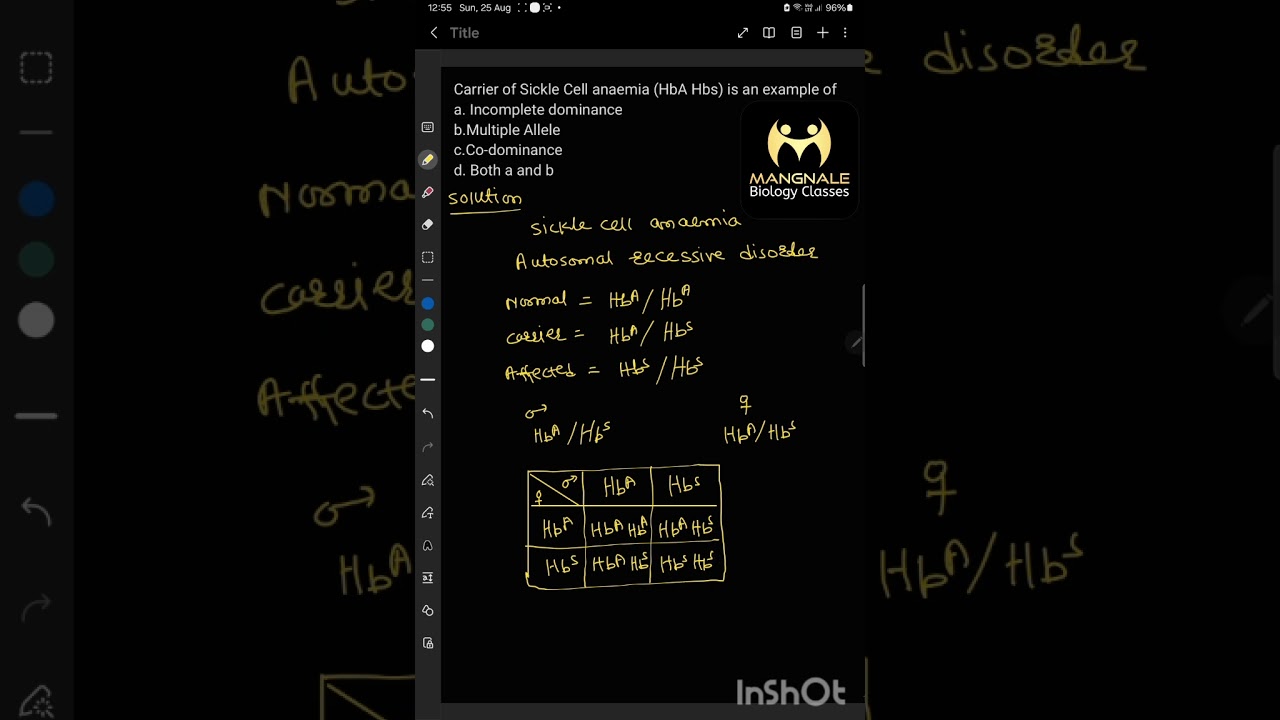 12:55 Sun, 25 Aug
96%
Title
Carrier of Sickle Cell anaemia (HbA Hbs) is an example of
a. Incomplete dominance
b.Multiple Allele
c.Co-dominance
d. Both a and b
MANGNALE
Biology Classes
Solution
Sickle cell anaemia
Autosomal recessive disorder
Normal = Hbᴬ / Hbᴬ
Carrier = Hbᴬ / Hbˢ
Affected = Hbˢ / Hbˢ
♂ ♀
Hbᴬ / Hbˢ Hbᴬ / Hbˢ
♀ ♂ Hbᴬ Hbˢ
Hbᴬ Hbᴬ Hbᴬ Hbᴬ Hbˢ
Hbˢ Hbᴬ Hbˢ Hbˢ Hbˢ
InShOt
Auto
disorder
Normal
Carrier
Affecte
♂ ♀
Hbᴬ Hbᴬ / Hbˢ